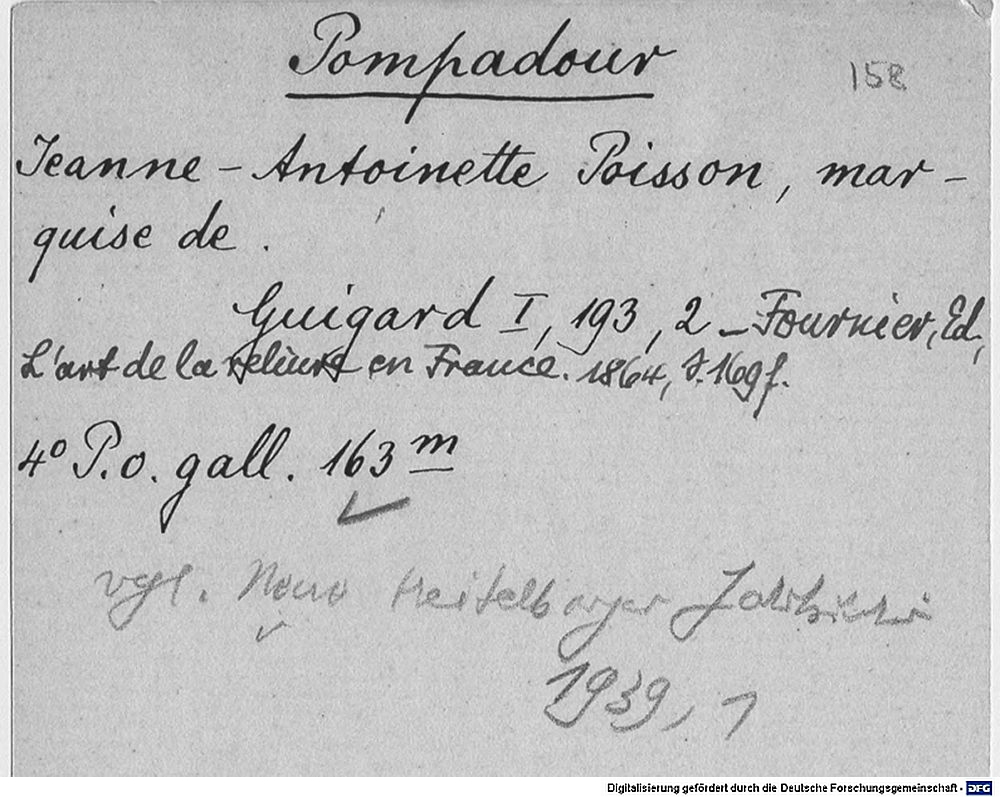 Pompadour
158
Jeanne-Antoinette Poisson, mar-
quise de.
Guigard I, 193, 2 – Fournier, Ed.,
L'art de la reliure en France. 1864, S. 169 f.
4° P.o. gall. 163 m
vgl. Neue Heidelberger Jahrbücher
1939, 1
Digitalisierung gefördert durch die Deutsche Forschungsgemeinschaft - DFG